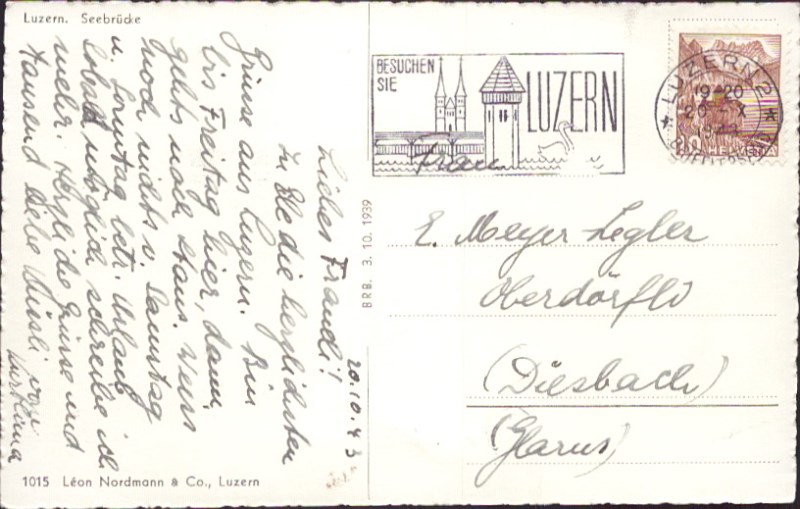 Luzern. Seebrücke
20.10.43
Liebes
die herzlichsten
Grüsse aus Luzern. Bin
bis Freitag hier, dann
gehts nach Haus. Weiss
noch nichts v. Samstag
u. Sonntag betr. Urlaub
Sobald möglich schreibe ich
mehr. Herzliche Grüsse und
tausend liebe von
1015 Léon Nordmann & Co., Luzern
BRB. 3. 10. 1939
BESUCHEN
SIE
LUZERN
LUZERN 2
19-20
20 X
1943
10 HELVETIA
Frau
E. Meyer-Legler
Oberdörfli
(Diesbach)
(Glarus)